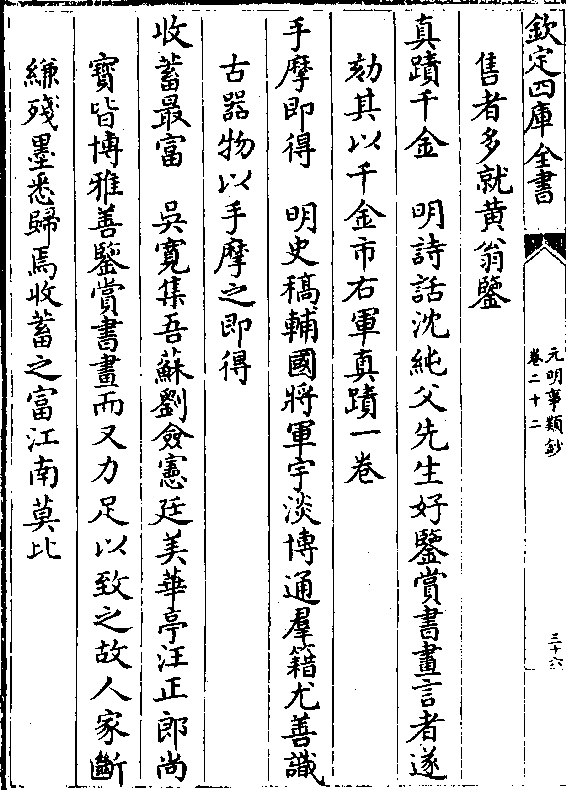 欽定四庫全書
元明事類鈔
卷二十二
三十六
售者多就黄翁鑒
真蹟千金　明詩話沈純父先生好鑒賞書畫言者遂
劾其以千金市右軍真蹟一卷
手摩即得　明史稿輔國將軍宇淡博通羣籍尤善識
古器物以手摩之即得
收蓄最富　吳寛集吾蘇劉僉憲廷美華亭汪正郎尚
寳皆博雅善鑒賞書畫而又力足以致之故人家斷
縑殘墨悉歸焉收蓄之富江南莫比